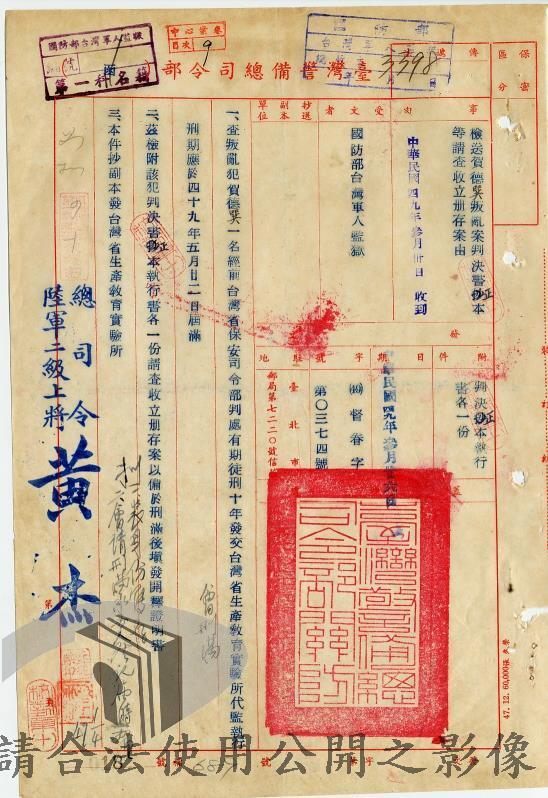 臺灣警備總司令部
國防部台灣軍人監獄
第一科
中心業卷
目次 9
國防部
3398
保密
區分
傳遞
事由
檢送賀德巽叛亂案判決書抄本
等請查收立册存案由
中華民國四九年叁月卅日 收到
受文者
國防部台灣軍人監獄
抄送
副本
單位
附件
判決抄本執行
書各一份
日期
中華民國四九年叁月廿六日
字號
督眷字
第〇三七四號
駐地
臺北市
郵局第七二二〇號信箱
一、查叛亂犯賀德巽一名經前台灣省保安司令部判處有期徒刑十年發交台灣省生產教育實驗所代監執行
刑期應於四十九年五月廿二日屆滿
二、茲檢附該犯判決書抄本執行書各一份請查收立册存案以備於刑滿後填發開釋證明書
三、本件抄副本發台灣省生產教育實驗所
總司令
陸軍二級上將 黃杰
臺灣警備總司令部關防
47. 12. 60,000張
請合法使用公開之影像